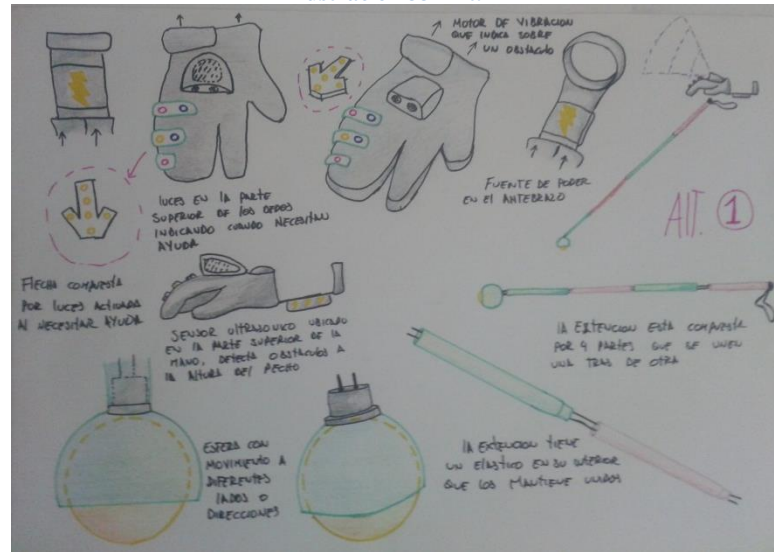 MOTOR DE VIBRACION
QUE INDICA SOBRE
UN OBSTACULO
LUCES EN LA PARTE
SUPERIOR DE LOS DEDOS
INDICANDO CUANDO NECESITAN
AYUDA
FUENTE DE PODER
EN EL ANTEBRAZO
Alt. 1
FLECHA COMPUESTA
POR LUCES ACTIVADA
AL NECESITAR AYUDA
SENSOR ULTRASONICO UBICADO
EN LA PARTE SUPERIOR DE LA
MANO, DETECTA OBSTACULOS A
LA ALTURA DEL PECHO
LA EXTENCION ESTA COMPUESTA
POR 4 PARTES QUE SE UNEN
UNA TRAS DE OTRA
ESFERA CON
MOVIMIENTO A
DIFERENTES
LADOS O
DIRECCIONES
LA EXTENCION TIENE
UN ELASTICO EN SU INTERIOR
QUE LOS MANTIENE UNIDOS